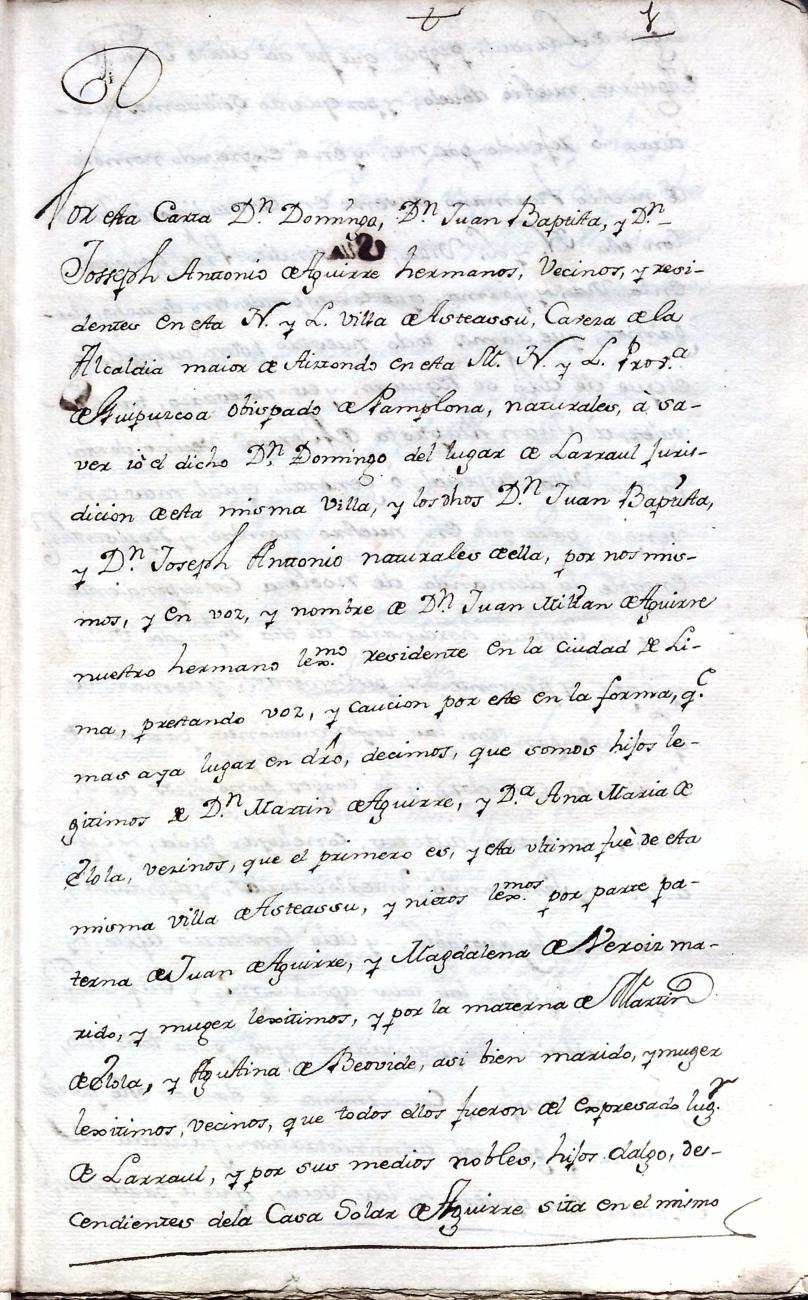 1
Por esta Carta Dn. Domingo, Dn. Juan Baptista, y Dn.
Josseph Antonio de Aguirre hermanos, Vecinos, y resi-
dentes en esta N. y L. Villa de Asteassu, Caveza de la
Alcaldia maior de Aiztondo en esta M. N. y L. Prova.
de Guipuzcoa Obispado de Pamplona, naturales, à sa-
ver iò el dicho Dn. Domingo del lugar de Larraul Juris-
dicion de esta misma Villa, y los dhos Dn. Juan Baptista,
y Dn. Joseph Antonio naturales de ella, por nos mis-
mos, y en voz, y nombre de Dn. Juan Millan de Aguirre
nuestro hermano lexmo. residente en la Ciudad de Li-
ma, prestando voz, y caucion por este en la forma, qe.
mas aya lugar en dro, decimos, que somos hijos le-
gitimos de Dn. Martin de Aguirre, y Da. Ana Maria de
Olola, vezinos, que el primero es, y esta ultima fuè de esta
misma Villa de Asteassu, y nietos lexmos. por parte pa-
terna de Juan de Aguirre, y Magdalena de Veroiz ma-
rido, y muger lexitimos, y por la materna de Martin
de Olola, y Agustina de Beovide, asi bien marido, y muger
lexitimos, vecinos, que todos ellos fueron del expresado lugr.
de Larraul, y por sus medios nobles, hijos dalgo, des-
cendientes de la Casa Solar de Aguirre sita en el mismo